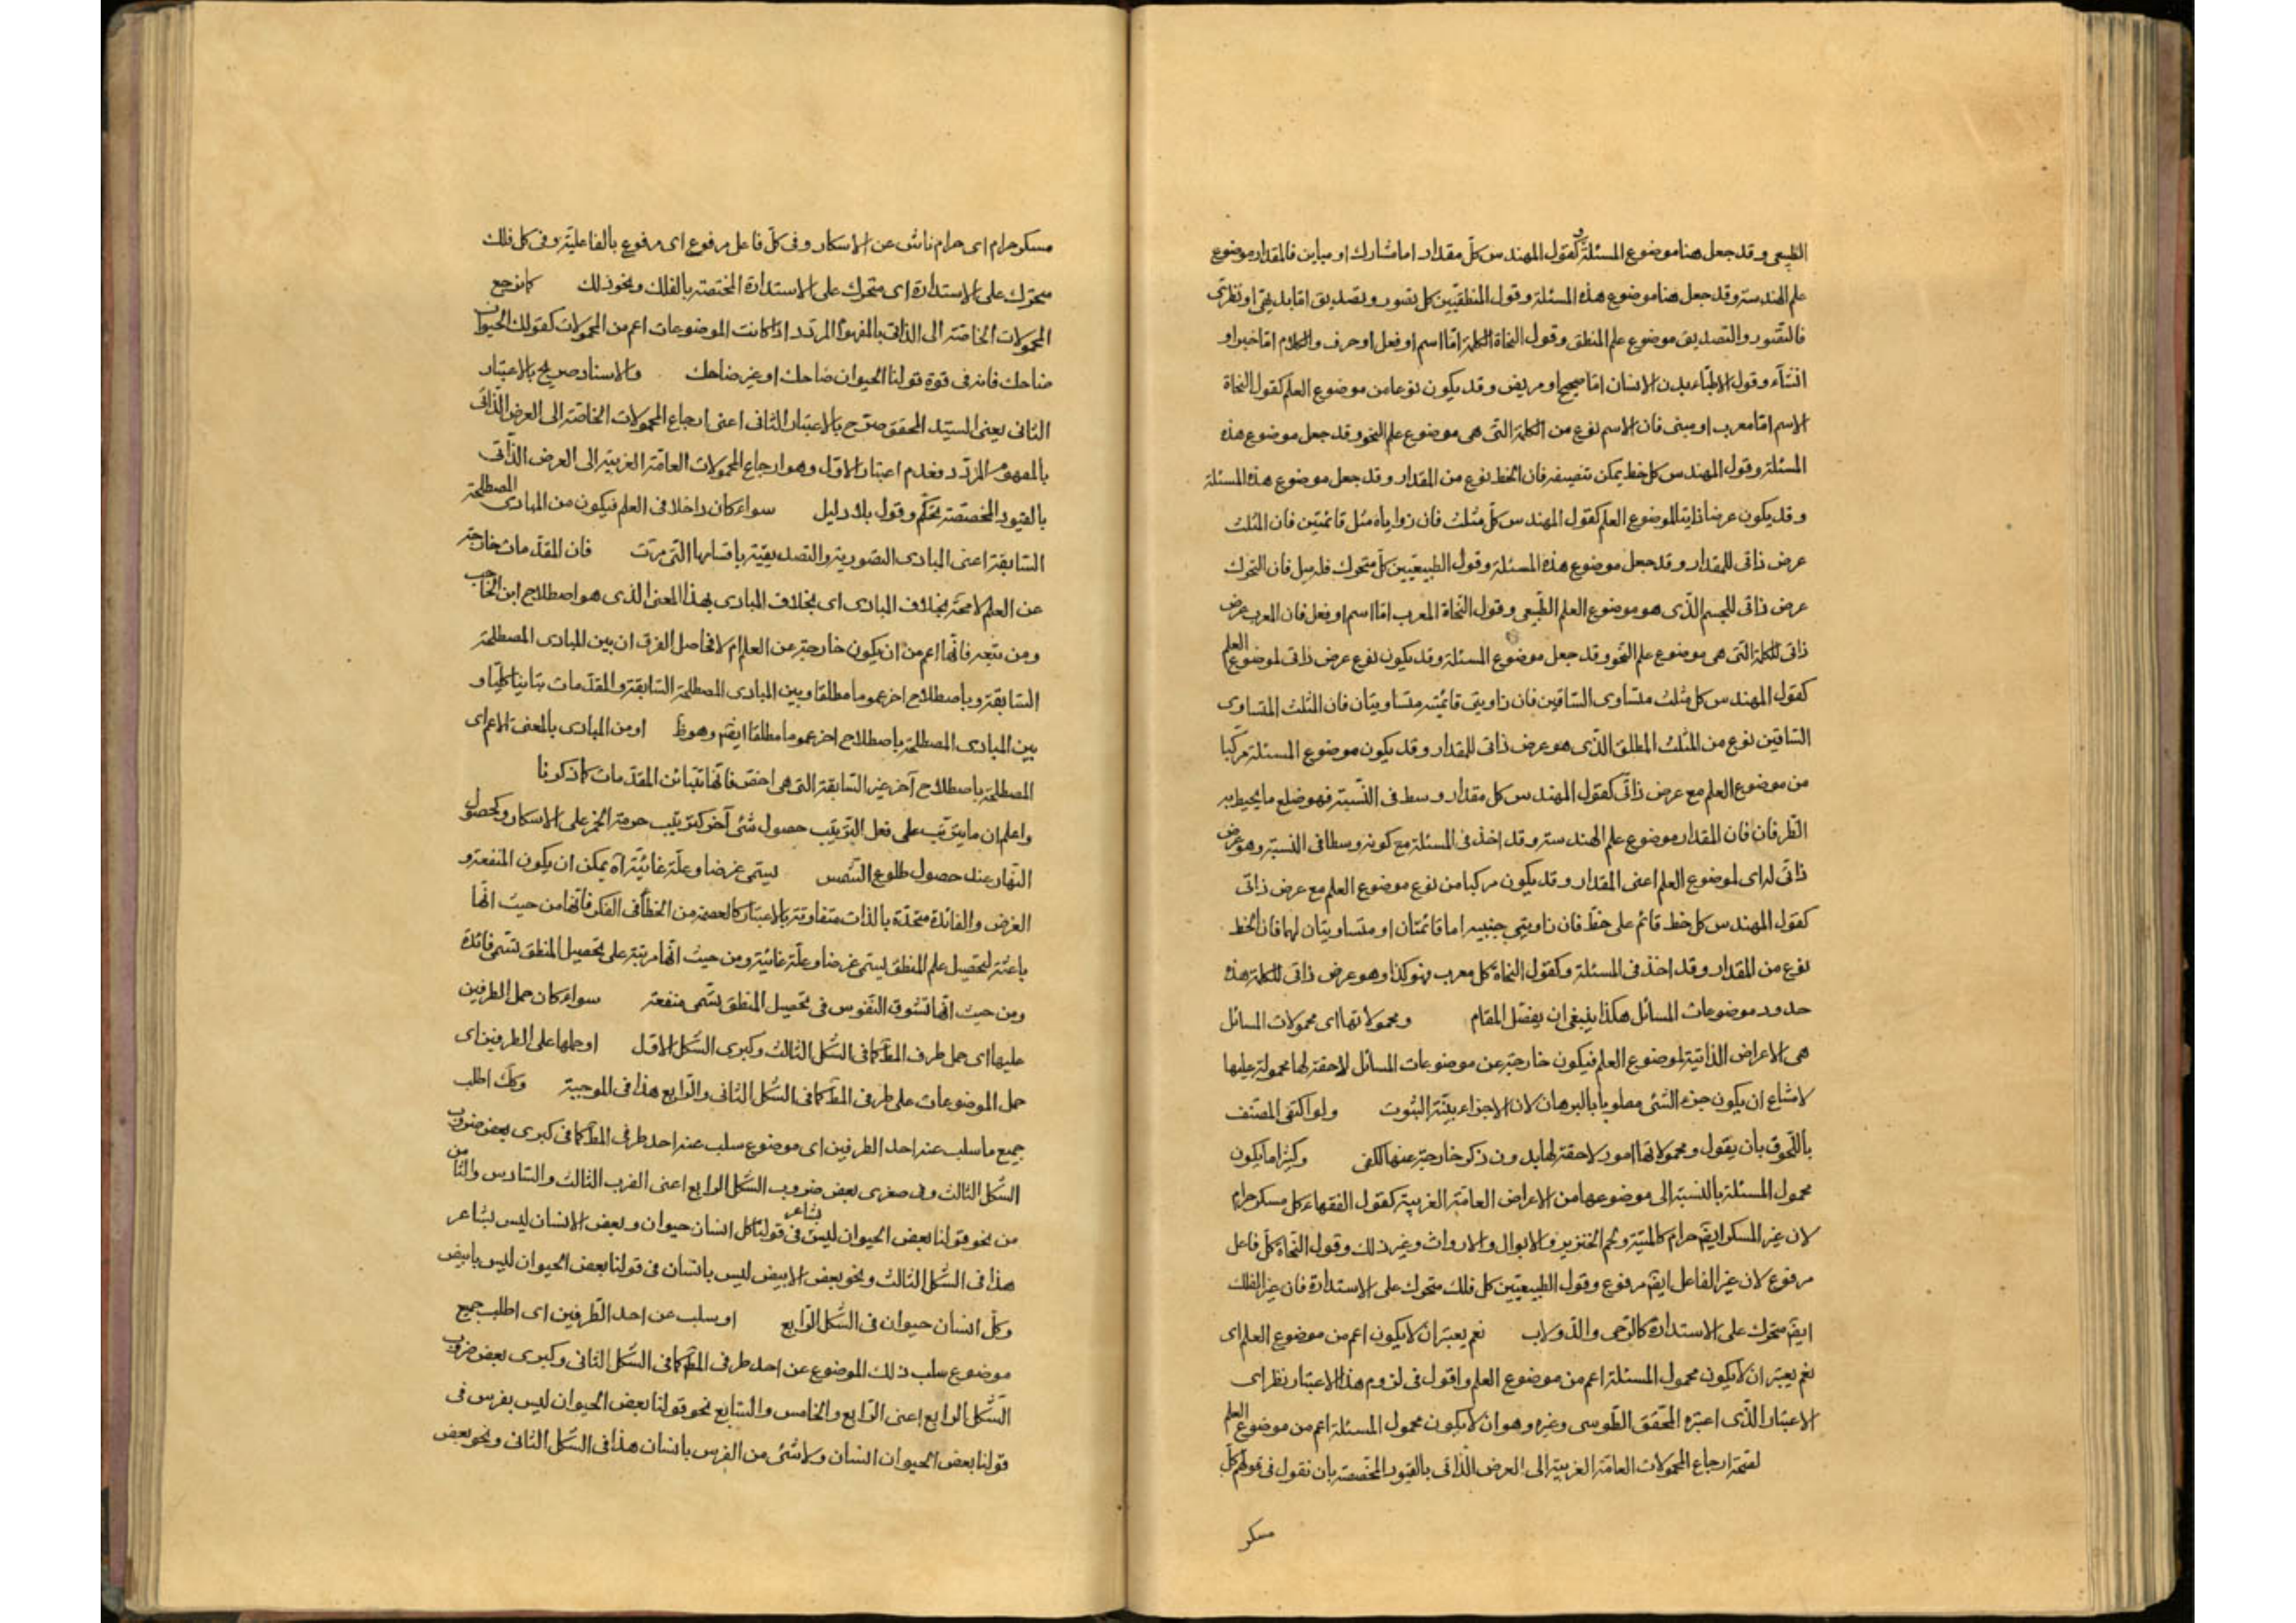 الطبيعى وقد جعل هنا موضوع المسئلة وكقول المهندس كل مقدار اما مشارك او مباين فالمقدار موضوع
علم الهندسة وقد جعل هنا موضوع هذه المسئلة وقول المنطقيين كل تصور وتصديق اما بديهى او نظرى
فالتصور والتصديق موضوع علم المنطق وقول النحاة الكلمة اما اسم او فعل او حرف والكلام اما خبر او
انشاء وقول الاطباء بدن الانسان اما صحيح او مريض وقد يكون نوعا من موضوع العلم كقول النحاة
الاسم اما معرب او مبنى فان الاسم نوع من الكلمة التى هى موضوع علم النحو وقد جعل موضوع هذه
المسئلة وقول المهندس كل خط يمكن تنصيفه فان الخط نوع من المقدار وقد جعل موضوع هذه المسئلة
وقد يكون عرضا ذاتيا لموضوع العلم كقول المهندس كل مثلث فان زواياه مثل قائمتين فان المثلث
عرض ذاتى للمقدار وقد جعل موضوع هذه المسئلة وقول الطبيعيين كل متحرك فله ميل فان التحرك
عرض ذاتى للجسم الذى هو موضوع العلم الطبيعى وقول النحاة المعرب اما اسم او فعل فان المعرب عرض
ذاتى للكلمة التى هى موضوع علم النحو وقد جعل موضوع المسئلة وقد يكون نوع عرض ذاتى لموضوع العلم
كقول المهندس كل مثلث متساوى الساقين فان زاويتى قائمته متساويتان فان المثلث المتساوى
الساقين نوع من المثلث المطلق الذى هو عرض ذاتى للمقدار وقد يكون موضوع المسئلة مركبا
من موضوع العلم مع عرض ذاتى كقول المهندس كل مقدار وسط فى النسبة فهو ضلع ما يحيط به
الطرفان فان المقدار موضوع علم الهندسة وقد اخذ فى المسئلة مع كونه وسطا فى النسبة وهو عرض
ذاتى له اى لموضوع العلم اعنى المقدار وقد يكون مركبا من نوع موضوع العلم مع عرض ذاتى
كقول المهندس كل خط قائم على خط فان زاويتى جنبيه اما قائمتان او متساويتان لهما فان الخط
نوع من المقدار وقد اخذ فى المسئلة وكقول النحاة كل معرب فهو كذا وهو عرض ذاتى للكلمة هذه
حدود موضوعات المسائل هكذا ينبغى ان يفصل المقام ومحمولاتها اى محمولات المسائل
هى الاعراض الذاتية لموضوع العلم فيكون خارجة عن موضوعات المسائل لاحقة لها محمولة عليها
لامتناع ان يكون جزء الشئ مطلوبا بالبرهان لان الاجزاء بينة الثبوت ولو اكتفى المصنف
باللحوق بان يقول ومحمولاتها امور لاحقة لها بدون ذكر خارجة عنها لكفى وكثيرا ما يكون
محمول المسئلة بالنسبة الى موضوعها من الاعراض العامة الغريبة كقول الفقهاء كل مسكر حرام
لان غير المسكر ايضا حرام كالميتة ولحم الخنزير والابوال والارواث وغير ذلك وقول النحاة كل فاعل
مرفوع لان غير الفاعل ايضا مرفوع وقول الطبيعيين كل فلك متحرك على الاستدارة فان غير الفلك
ايضا متحرك على الاستدارة كالرحى والدولاب نعم يعتبر ان لا يكون اعم من موضوع العلم اى
نعم يعتبر ان لا يكون محمول المسئلة اعم من موضوع العلم واقول فى لزوم هذا الاعتبار نظر اى
الاعتبار الذى اعتبره المحقق الطوسى وغيره وهو ان لا يكون محمول المسئلة اعم من موضوع العلم
لصحة ارجاع المحمولات العامة الغريبة الى العرض الذاتى بالقيود المخصصة بان نقول فى قولهم كل
مسكر
مسكر حرام اى حرام ناش عن الاسكار وفى كل فاعل مرفوع اى مرفوع بالفاعلية وفى كل فلك
متحرك على الاستدارة اى متحرك على الاستدارة المختصة بالفلك ونحو ذلك كما نرجع
المحمولات الخاصة الى الذاتى بالمفهوم المردد اذا كانت الموضوعات اعم من المحمولات كقولك الحيوان
ضاحك فانه فى قوة قولنا الحيوان ضاحك او غير ضاحك والاستاد صرح بالاعتبار
الثانى يعنى السيد المحقق صرح بالاعتبار الثانى اعنى ارجاع المحمولات الخاصة الى العرض الذاتى
بالمفهوم المردد فعدم اعتبار الاول وهو ارجاع المحمولات العامة الغريبة الى العرض الذاتى
بالقيود المخصصة تحكم وقول بلا دليل سواء كان داخلا فى العلم فيكون من المبادى المصطلحة
السابقة اعنى المبادى التصورية والتصديقية باقسامها التى مرت فان المقدمات خارجة
عن العلم لا محة بخلاف المبادى اى بخلاف المبادى بهذا المعنى الذى هو اصطلاح ابن الحاجب
ومن تبعه فانها اعم من ان يكون خارجة عن العلم ام لا فحاصل الفرق ان بين المبادى المصطلحة
السابقة وباصطلاح اخر عموما مطلقا وبين المبادى المصطلحة السابقة والمقدمات تباينا كليا و
بين المبادى المصطلحة باصطلاح اخر عموما مطلقا ايضا وهو ظ او من المبادى بالمعنى الاعم اى
المصطلحة باصطلاح آخر غير السابقة التى هى اخص فانها تباين المقدمات كما ذكرنا
واعلم ان ما يترتب على فعل الترتيب حصول شئ آخر كترتيب حرمة الخمر على الاسكار وكحصول
النهار عند حصول طلوع الشمس يسمى غرضا وعلة غائية اه يمكن ان يكون المنفعة و
الغرض والفائدة متحدة بالذات متفاوتة بالاعتبار كالعصمة من الخطأ فى الفكر فانها من حيث انها
باعثة لتحصيل علم المنطق يسمى غرضا وعلة غائية ومن حيث انها مرتبة على تحصيل المنطق تسمى فائدة
ومن حيث انها تشوق النفوس فى تحصيل المنطق تسمى منفعة سواء كان حمل الطرفين
عليها اى حمل طرف المط كما فى الشكل الثالث وكبرى الشكل الاول او حملها على الطرفين اى
حمل الموضوعات على طرفى المط كما فى الشكل الثانى والرابع هذا فى الموجبة وكك اطلب
جميع ما سلب عنه احد الطرفين اى موضوع سلب عنه احد طرفى المط كما فى كبرى بعض ضروب
الشكل الثالث وفى صغرى بعض ضروب الشكل الرابع اعنى الضرب الثالث والسادس والثامن
من نحو قولنا بعض الحيوان ليس بشاعر فى قولنا كل انسان حيوان وبعض الانسان ليس بشاعر
هذا فى الشكل الثالث ونحو بعض الابيض ليس بانسان فى قولنا بعض الحيوان ليس بابيض
وكل انسان حيوان فى الشكل الرابع او سلب عن احد الطرفين اى اطلب جميع
موضوع سلب ذلك الموضوع عن احد طرفى المط كما فى الشكل الثانى وكبرى بعض ضروب
الشكل الرابع اعنى الرابع والخامس والسابع نحو قولنا بعض الحيوان ليس بفرس فى
قولنا بعض الحيوان انسان ولا شئ من الفرس بانسان هذا فى الشكل الثانى ونحو بعض